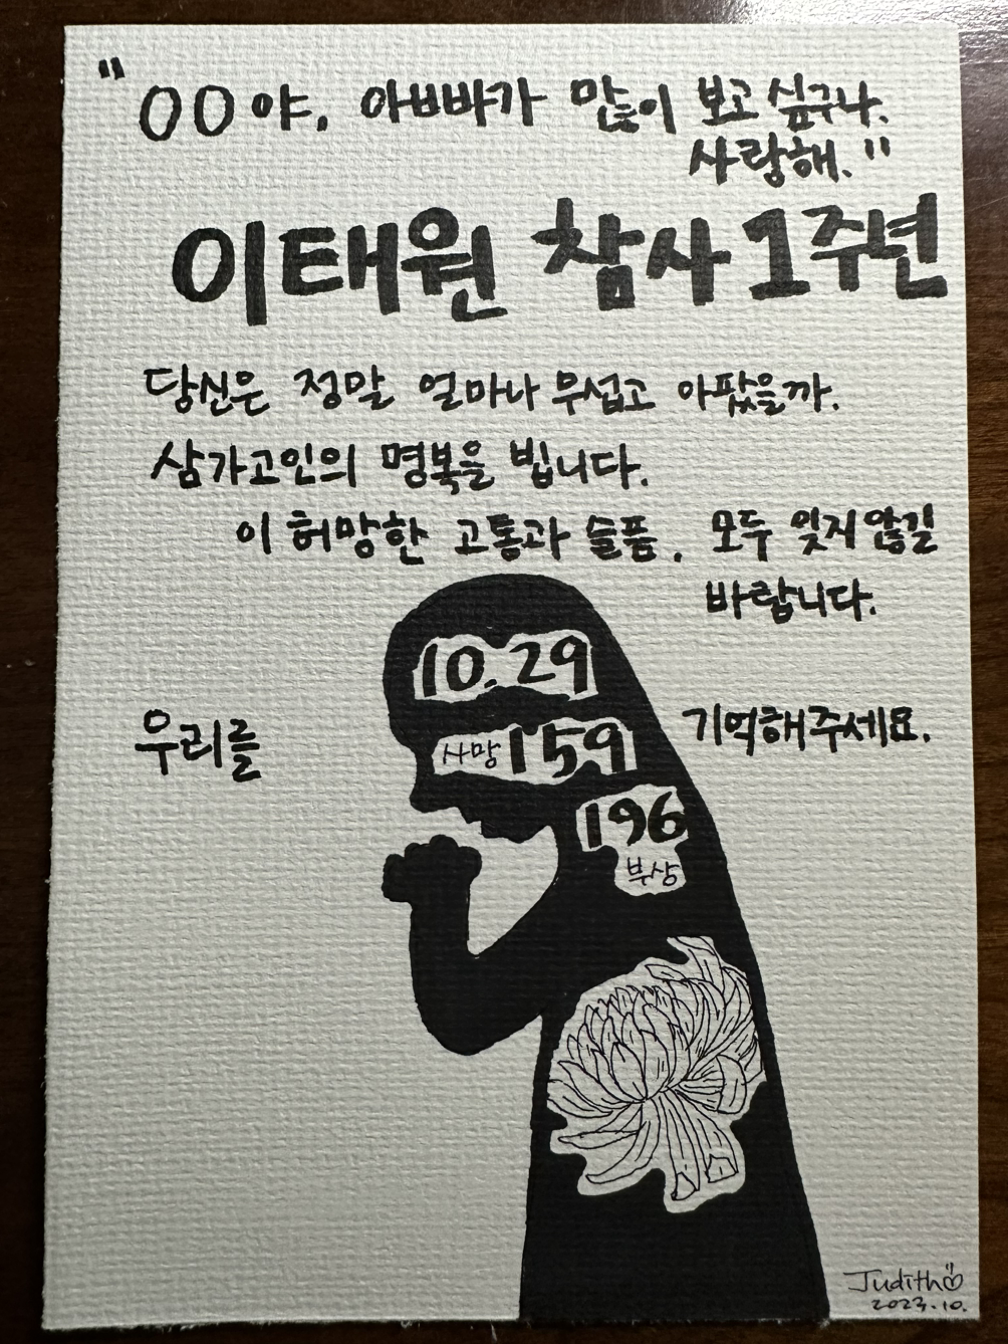 "OO야, 아빠가 많이 보고 싶구나.
사랑해."
이태원 참사 1주년
당신은 정말 얼마나 무섭고 아팠을까.
삼가고인의 명복을 빕니다.
이 허망한 고통과 슬픔, 모두 잊지 않길
바랍니다.
10.29
우리를 기억해주세요.
사망 159
196
부상
Judith
2023.10.